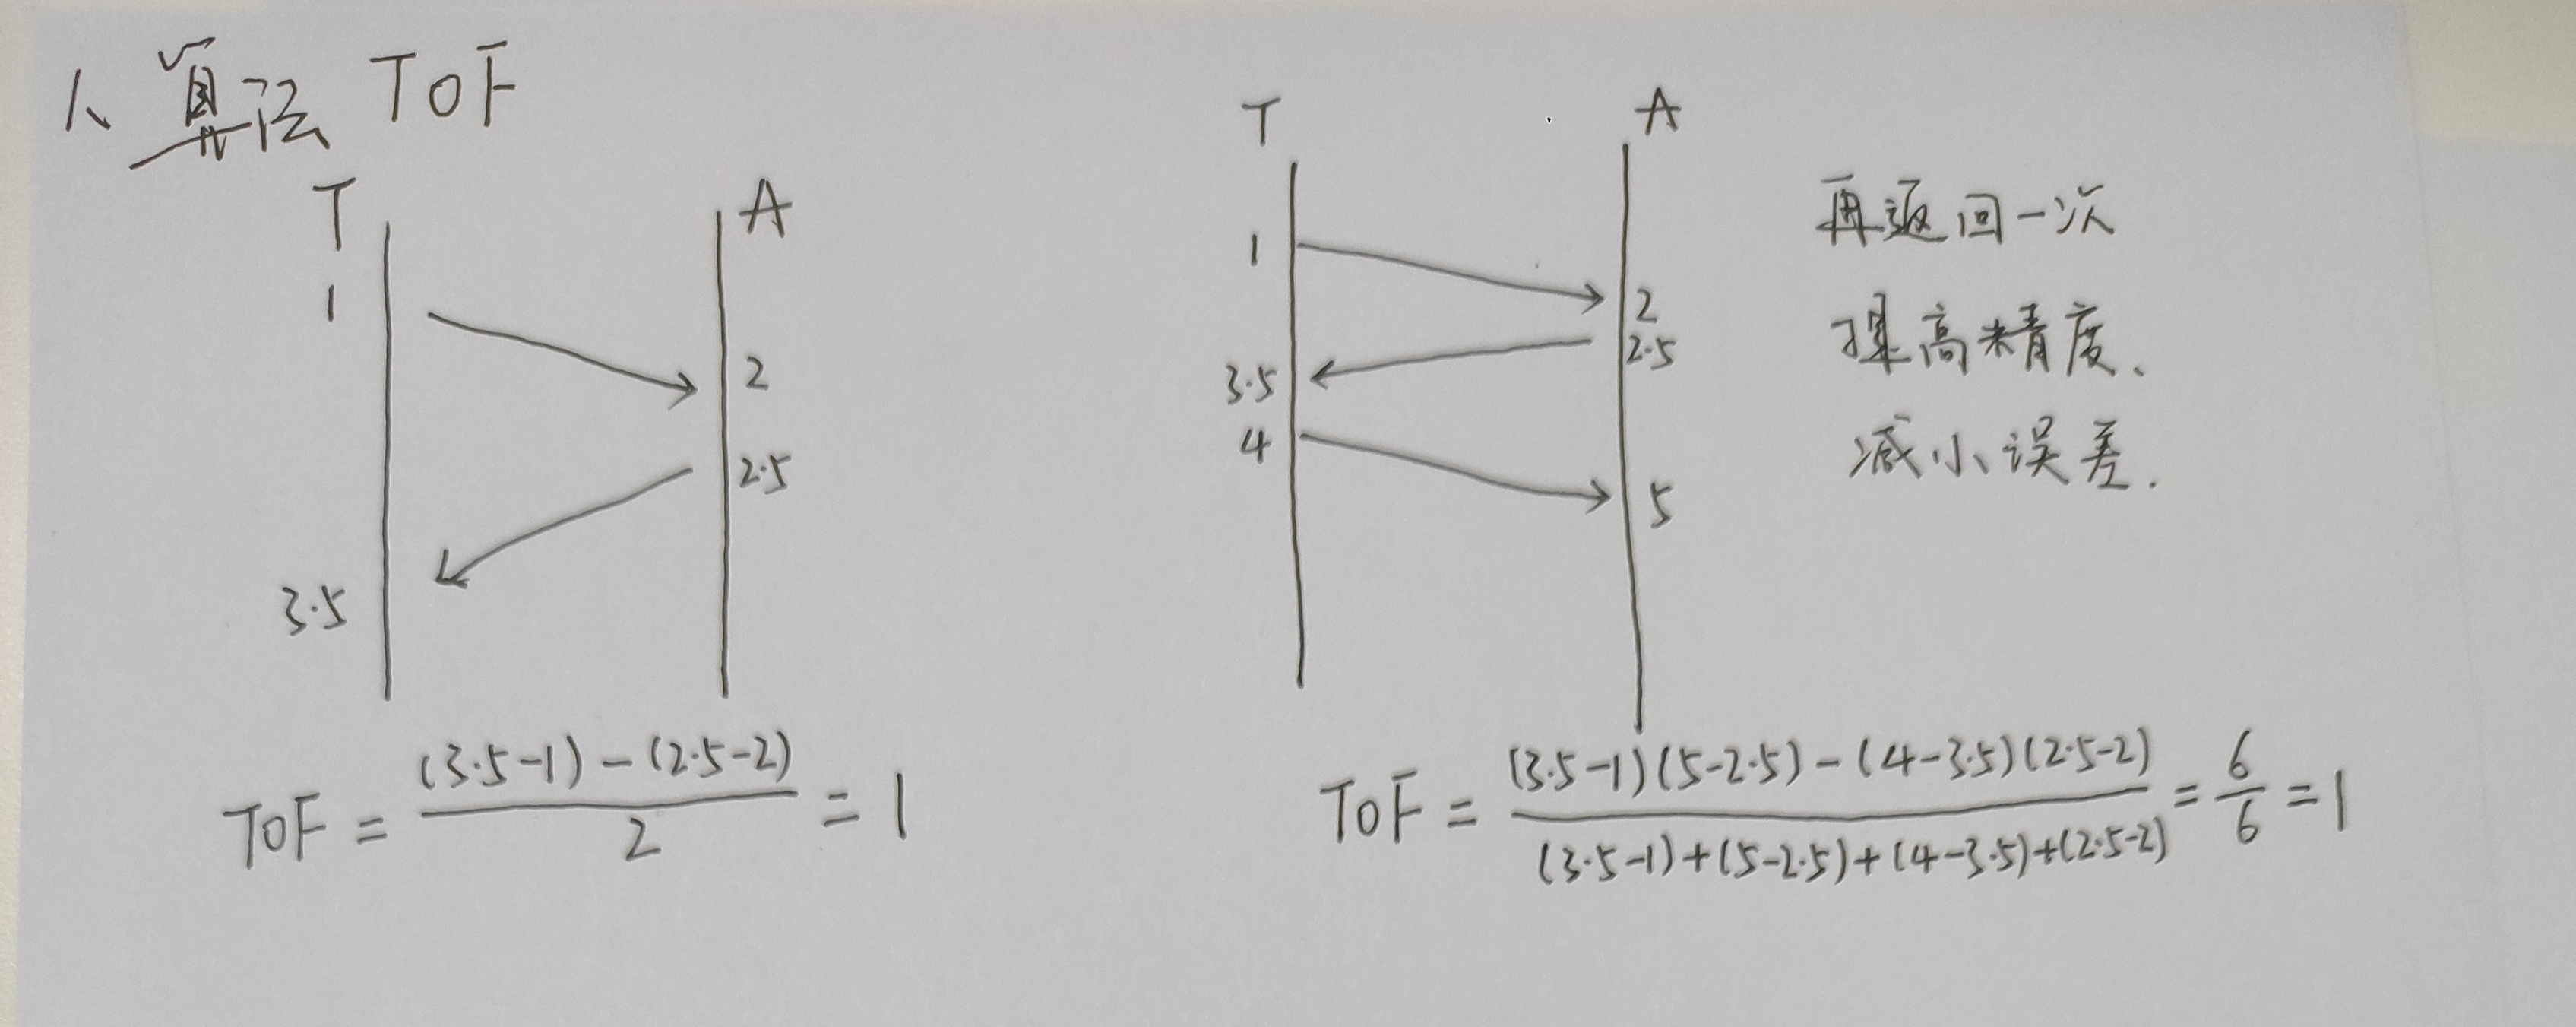 1、算法 ToF
T A
1
2
2.5
3.5
ToF = \frac{(3.5-1)-(2.5-2)}{2} = 1
T A
1
2
2.5
3.5
4
5
再返回一次
提高精度、
减小误差.
ToF = \frac{(3.5-1)(5-2.5)-(4-3.5)(2.5-2)}{(3.5-1)+(5-2.5)+(4-3.5)+(2.5-2)} = \frac{6}{6} = 1